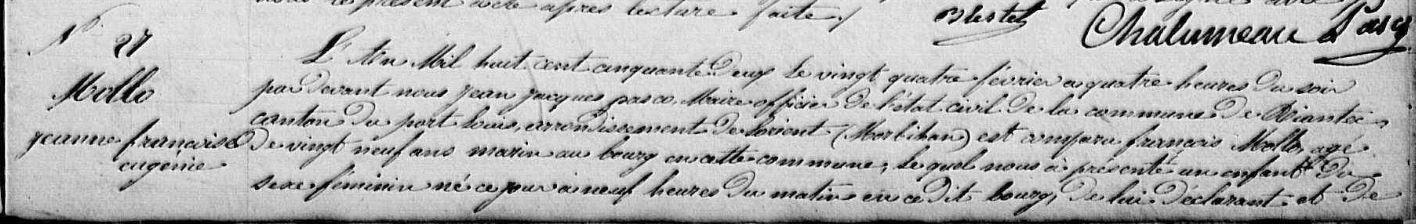 présent acte après lecture faite./
Blestel
Chalumeau Pasco
N° 27
Mollo
jeanne françoise
eugénie
L'An Mil huit cent cinquante Deux le vingt quatre février a quatre heures du soir
par devant nous jean jacques pasco Maire officier de l'état civil de la commune de Riantec,
canton du port louis, arrondissement de Lorient (Morbihan) est comparu françois Mollo, agé
de vingt neuf ans marin au bourg en cette commune, lequel nous à présenté un enfant du
sexe féminin né ce jour à neuf heures du matin en ce dit bourg, de lui déclarant et de